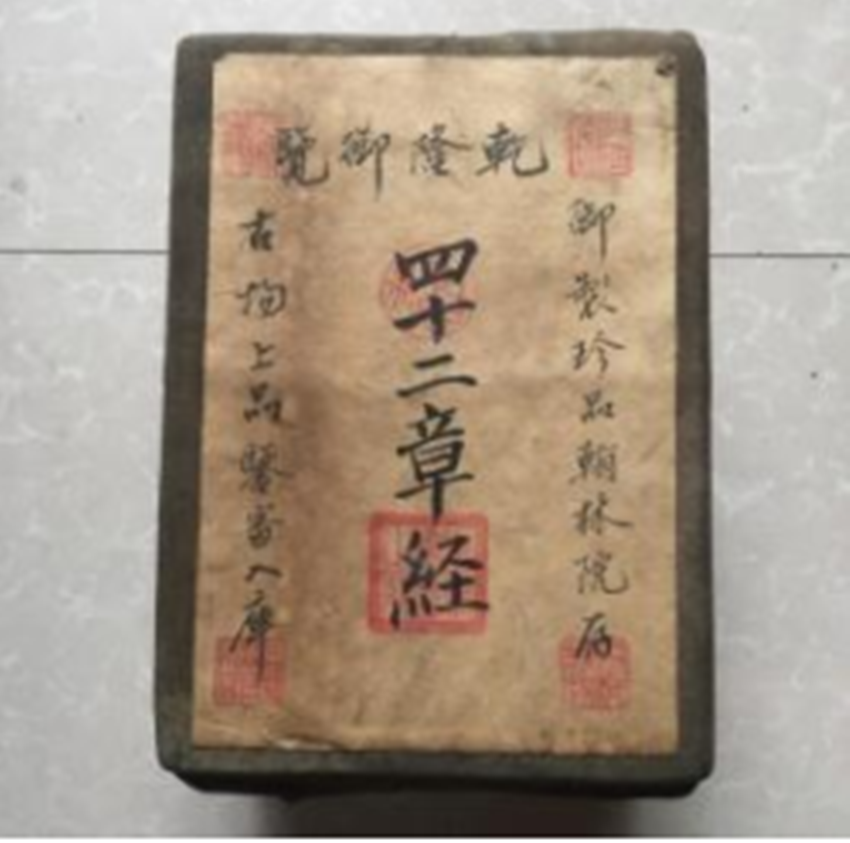 乾隆御覽
御製珍品翰林院存
四十二章経
古物上品鑒入庫